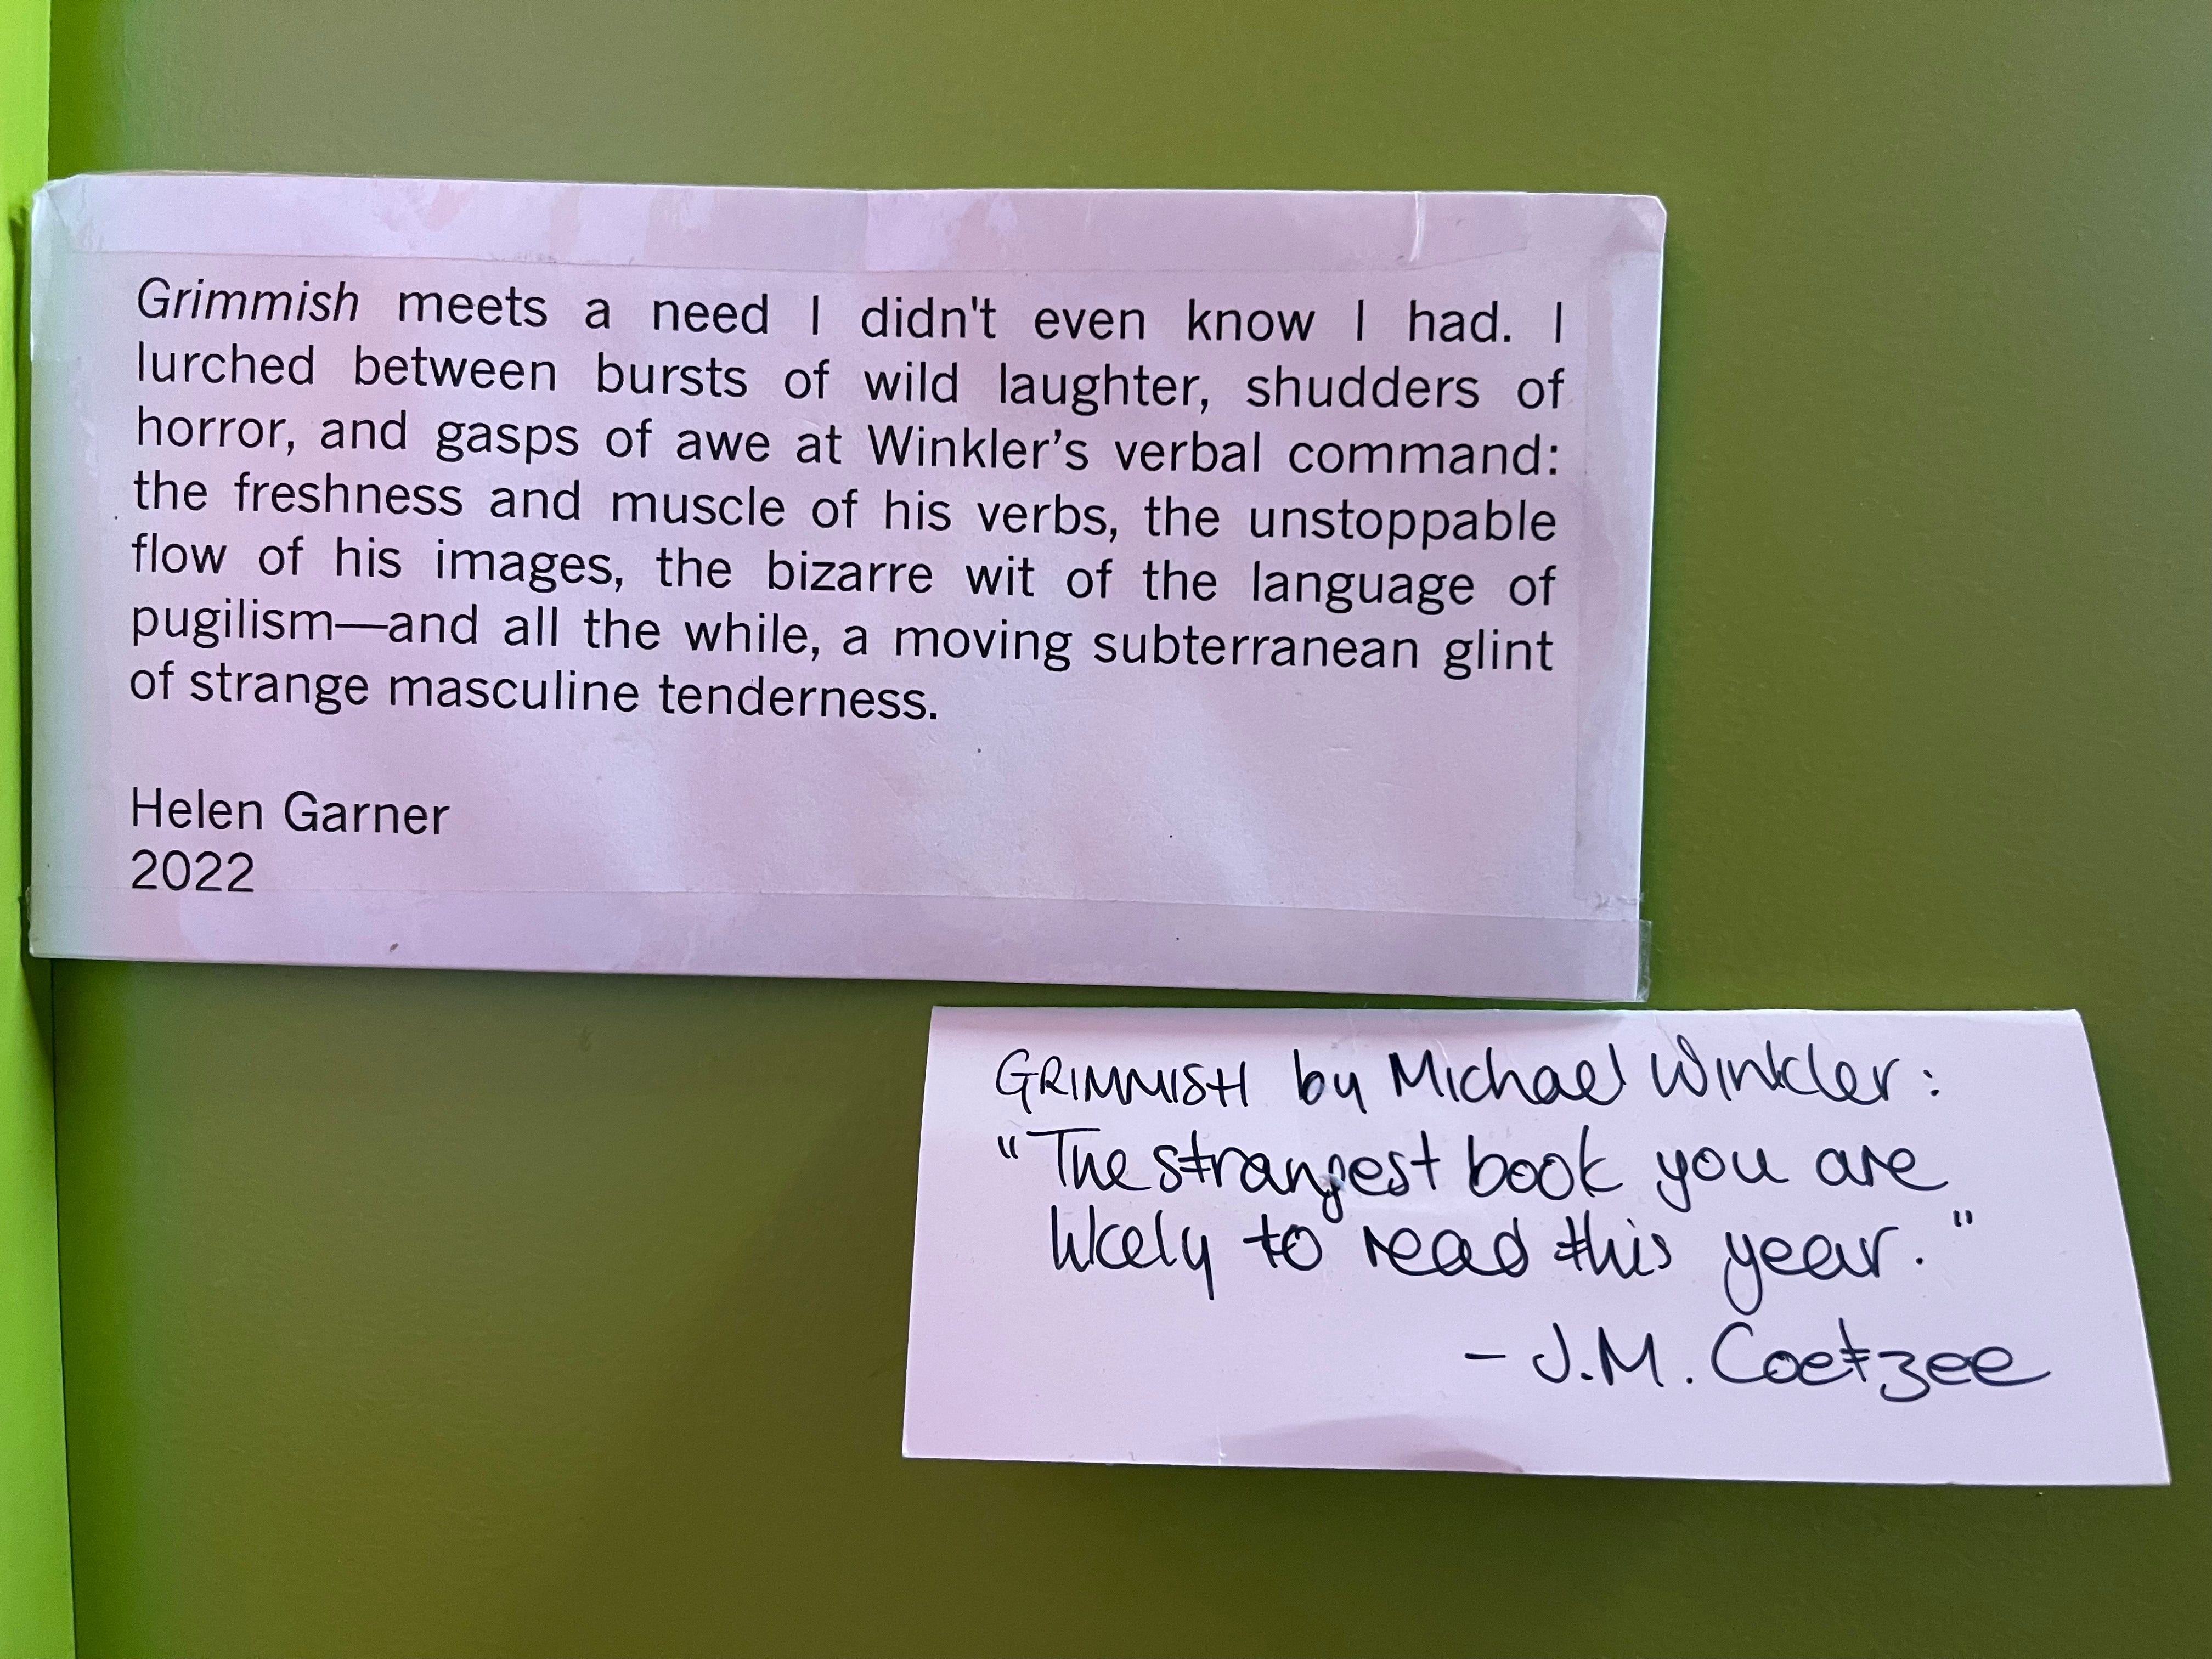 Grimmish meets a need I didn't even know I had. I
lurched between bursts of wild laughter, shudders of
horror, and gasps of awe at Winkler’s verbal command:
the freshness and muscle of his verbs, the unstoppable
flow of his images, the bizarre wit of the language of
pugilism—and all the while, a moving subterranean glint
of strange masculine tenderness.
Helen Garner
2022
GRIMMISH by Michael Winkler:
"The strangest book you are
likely to read this year."
- J.M. Coetzee